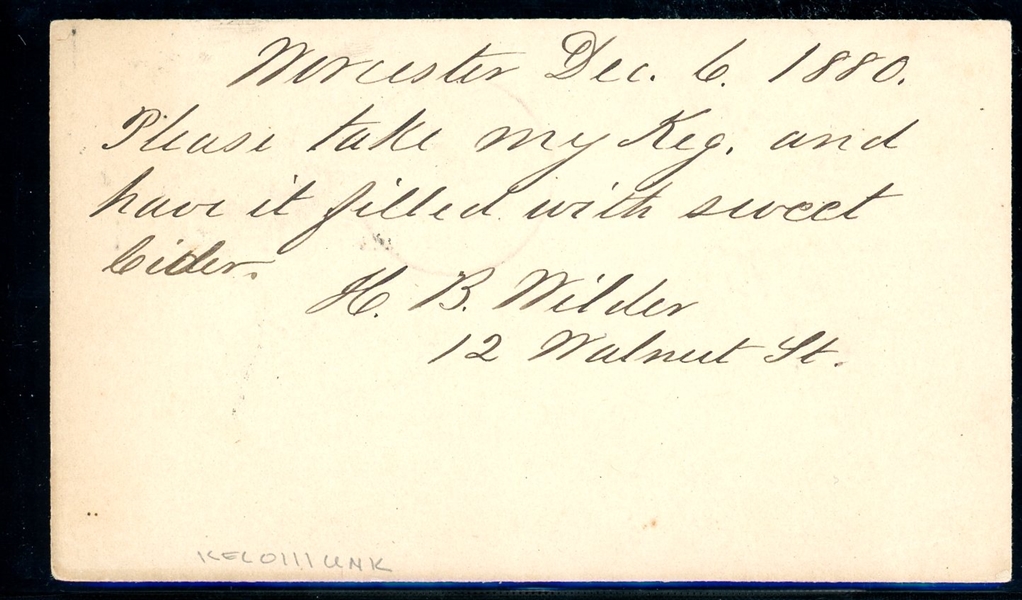 Worcester Dec. 6. 1880.
Please take my Keg. and
have it filled with sweet
Cider.
H. B. Wilder
12 Walnut St.